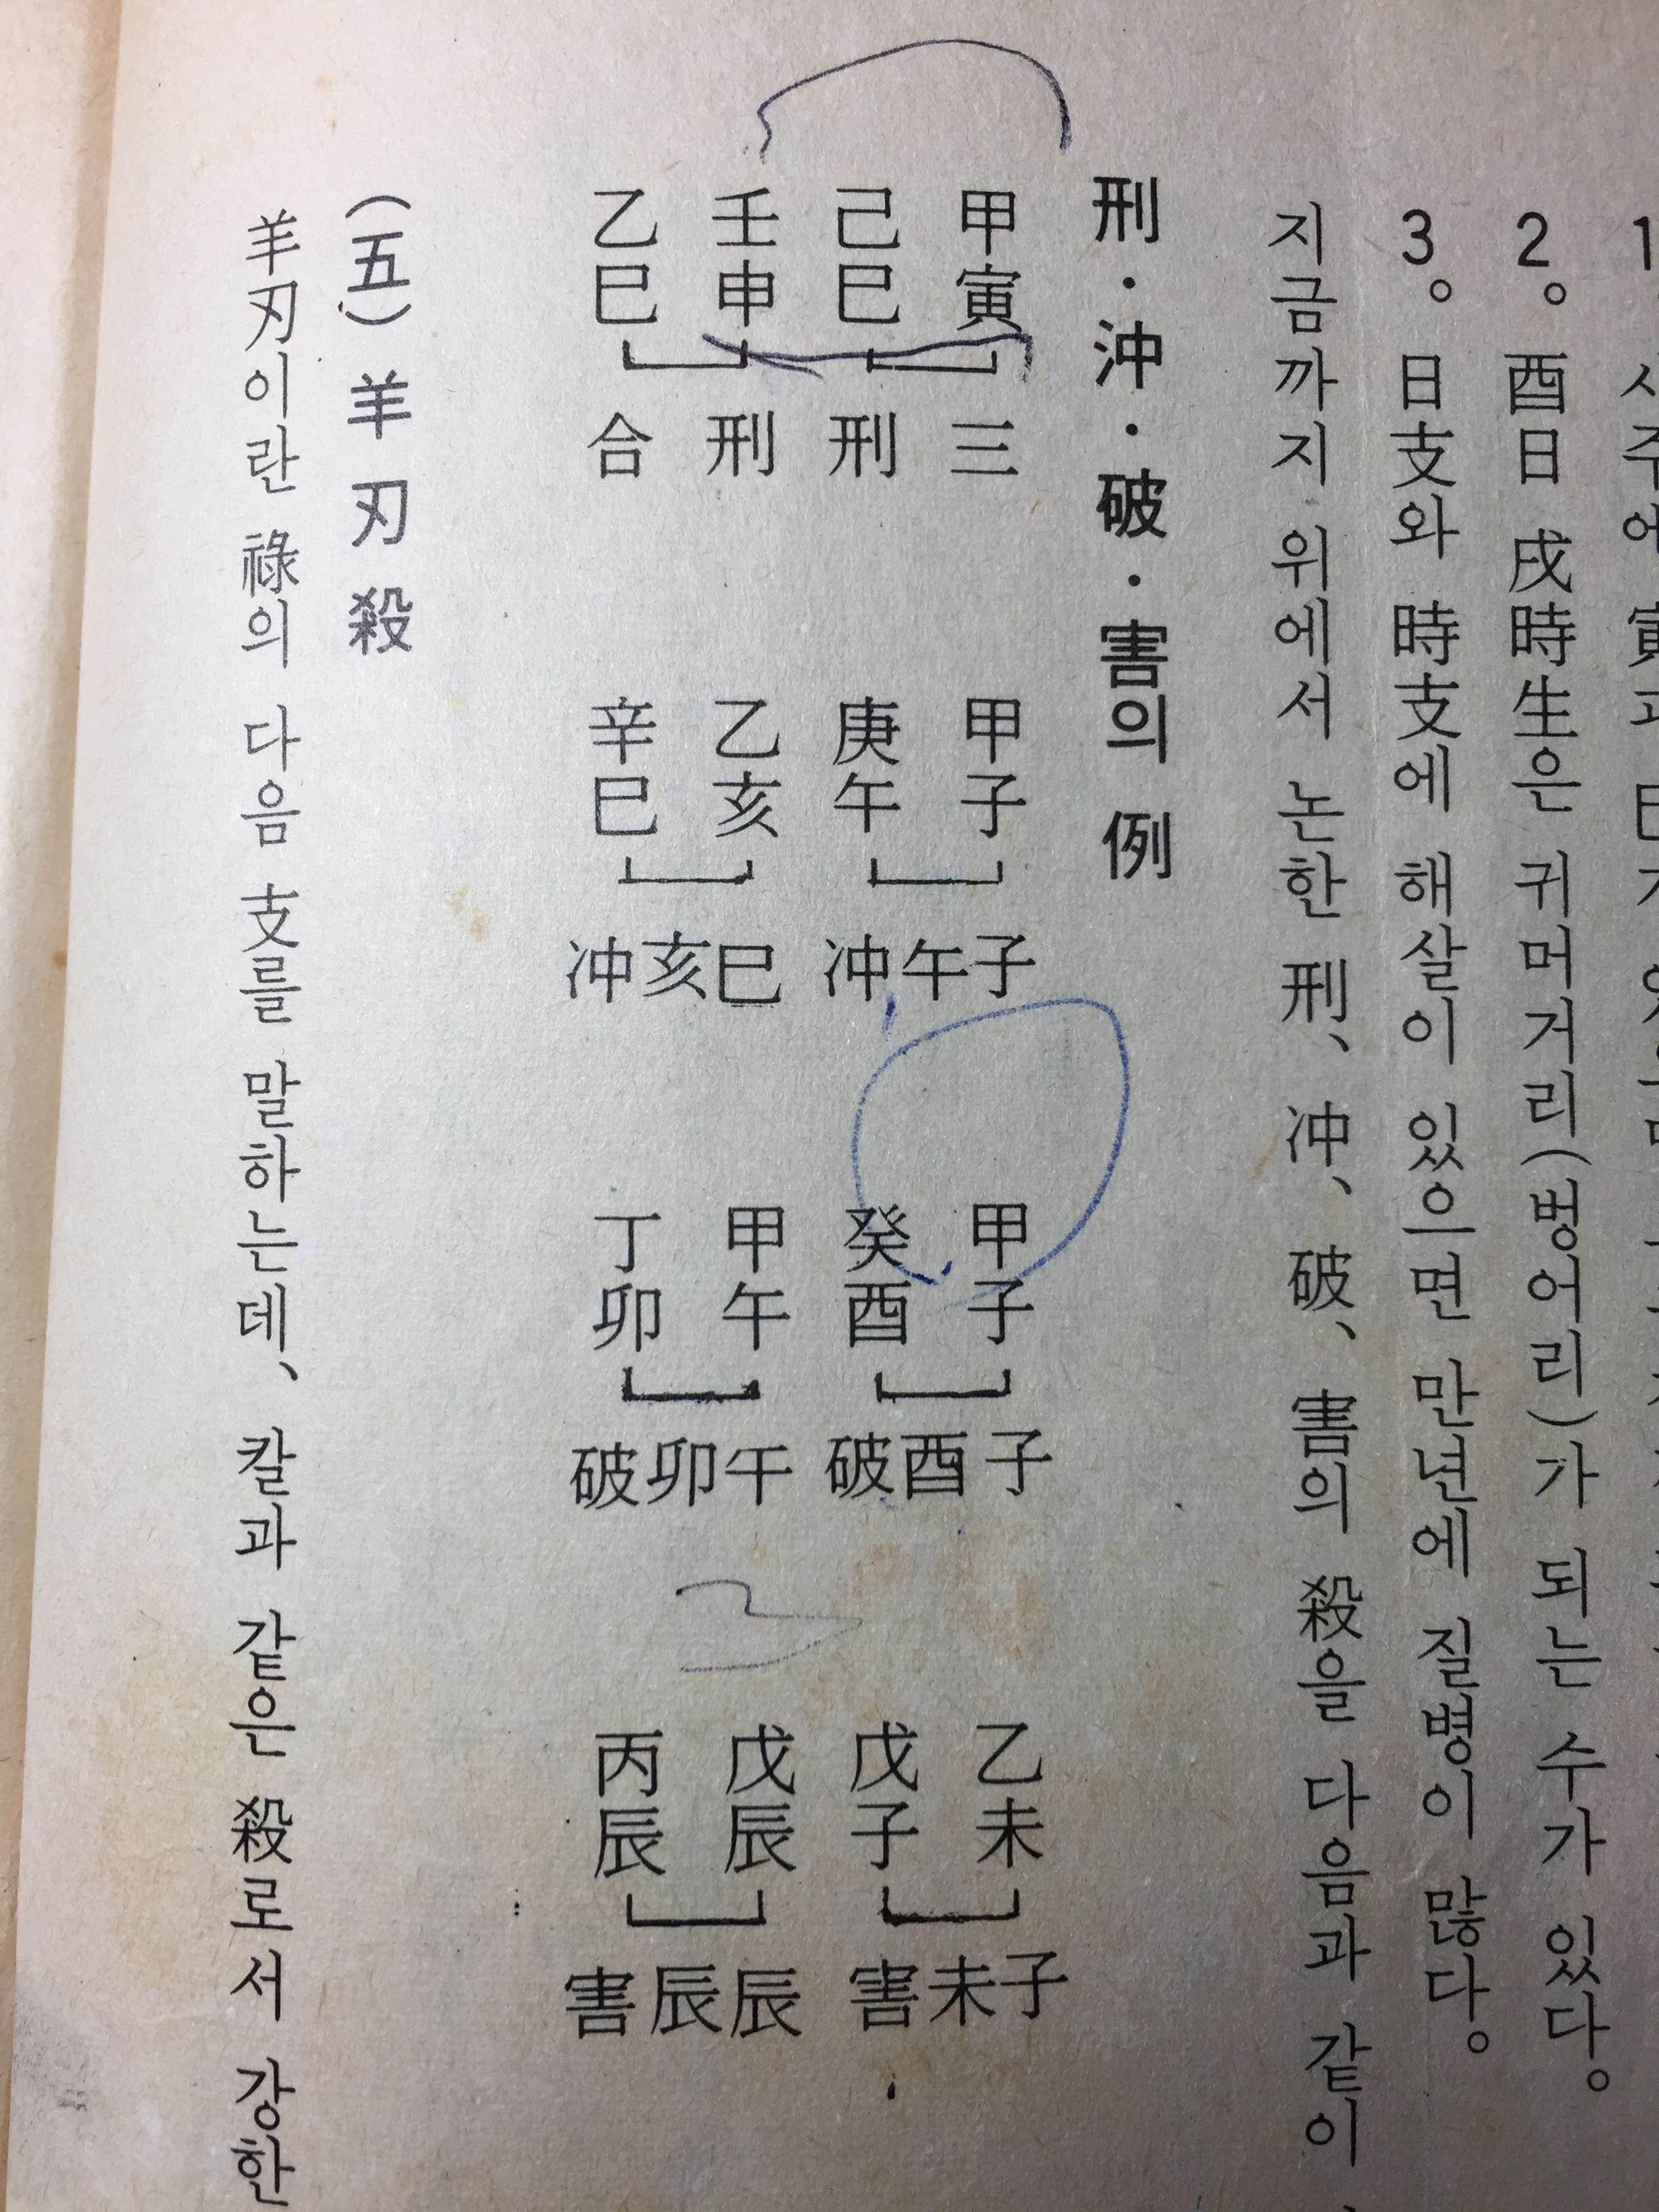 2。酉日 戌時生은 귀머거리(벙어리)가 되는 수가 있다。
3。日支와 時支에 해살이 있으면 만년에 질병이 많다。
지금까지 위에서 논한 刑、冲、破、害의 殺을 다음과 같이
刑・沖・破・害의 例
甲寅 己巳 壬申 乙巳
三 刑 刑 合
甲子 庚午 乙亥 辛巳
子午冲 巳亥冲
甲子 癸酉 甲午 丁卯
子酉破 午卯破
乙未 戊子 戊辰 丙辰
子未害 辰辰害
(五) 羊刃殺
羊刃이란 祿의 다음 支를 말하는데、칼과 같은 殺로서 강한